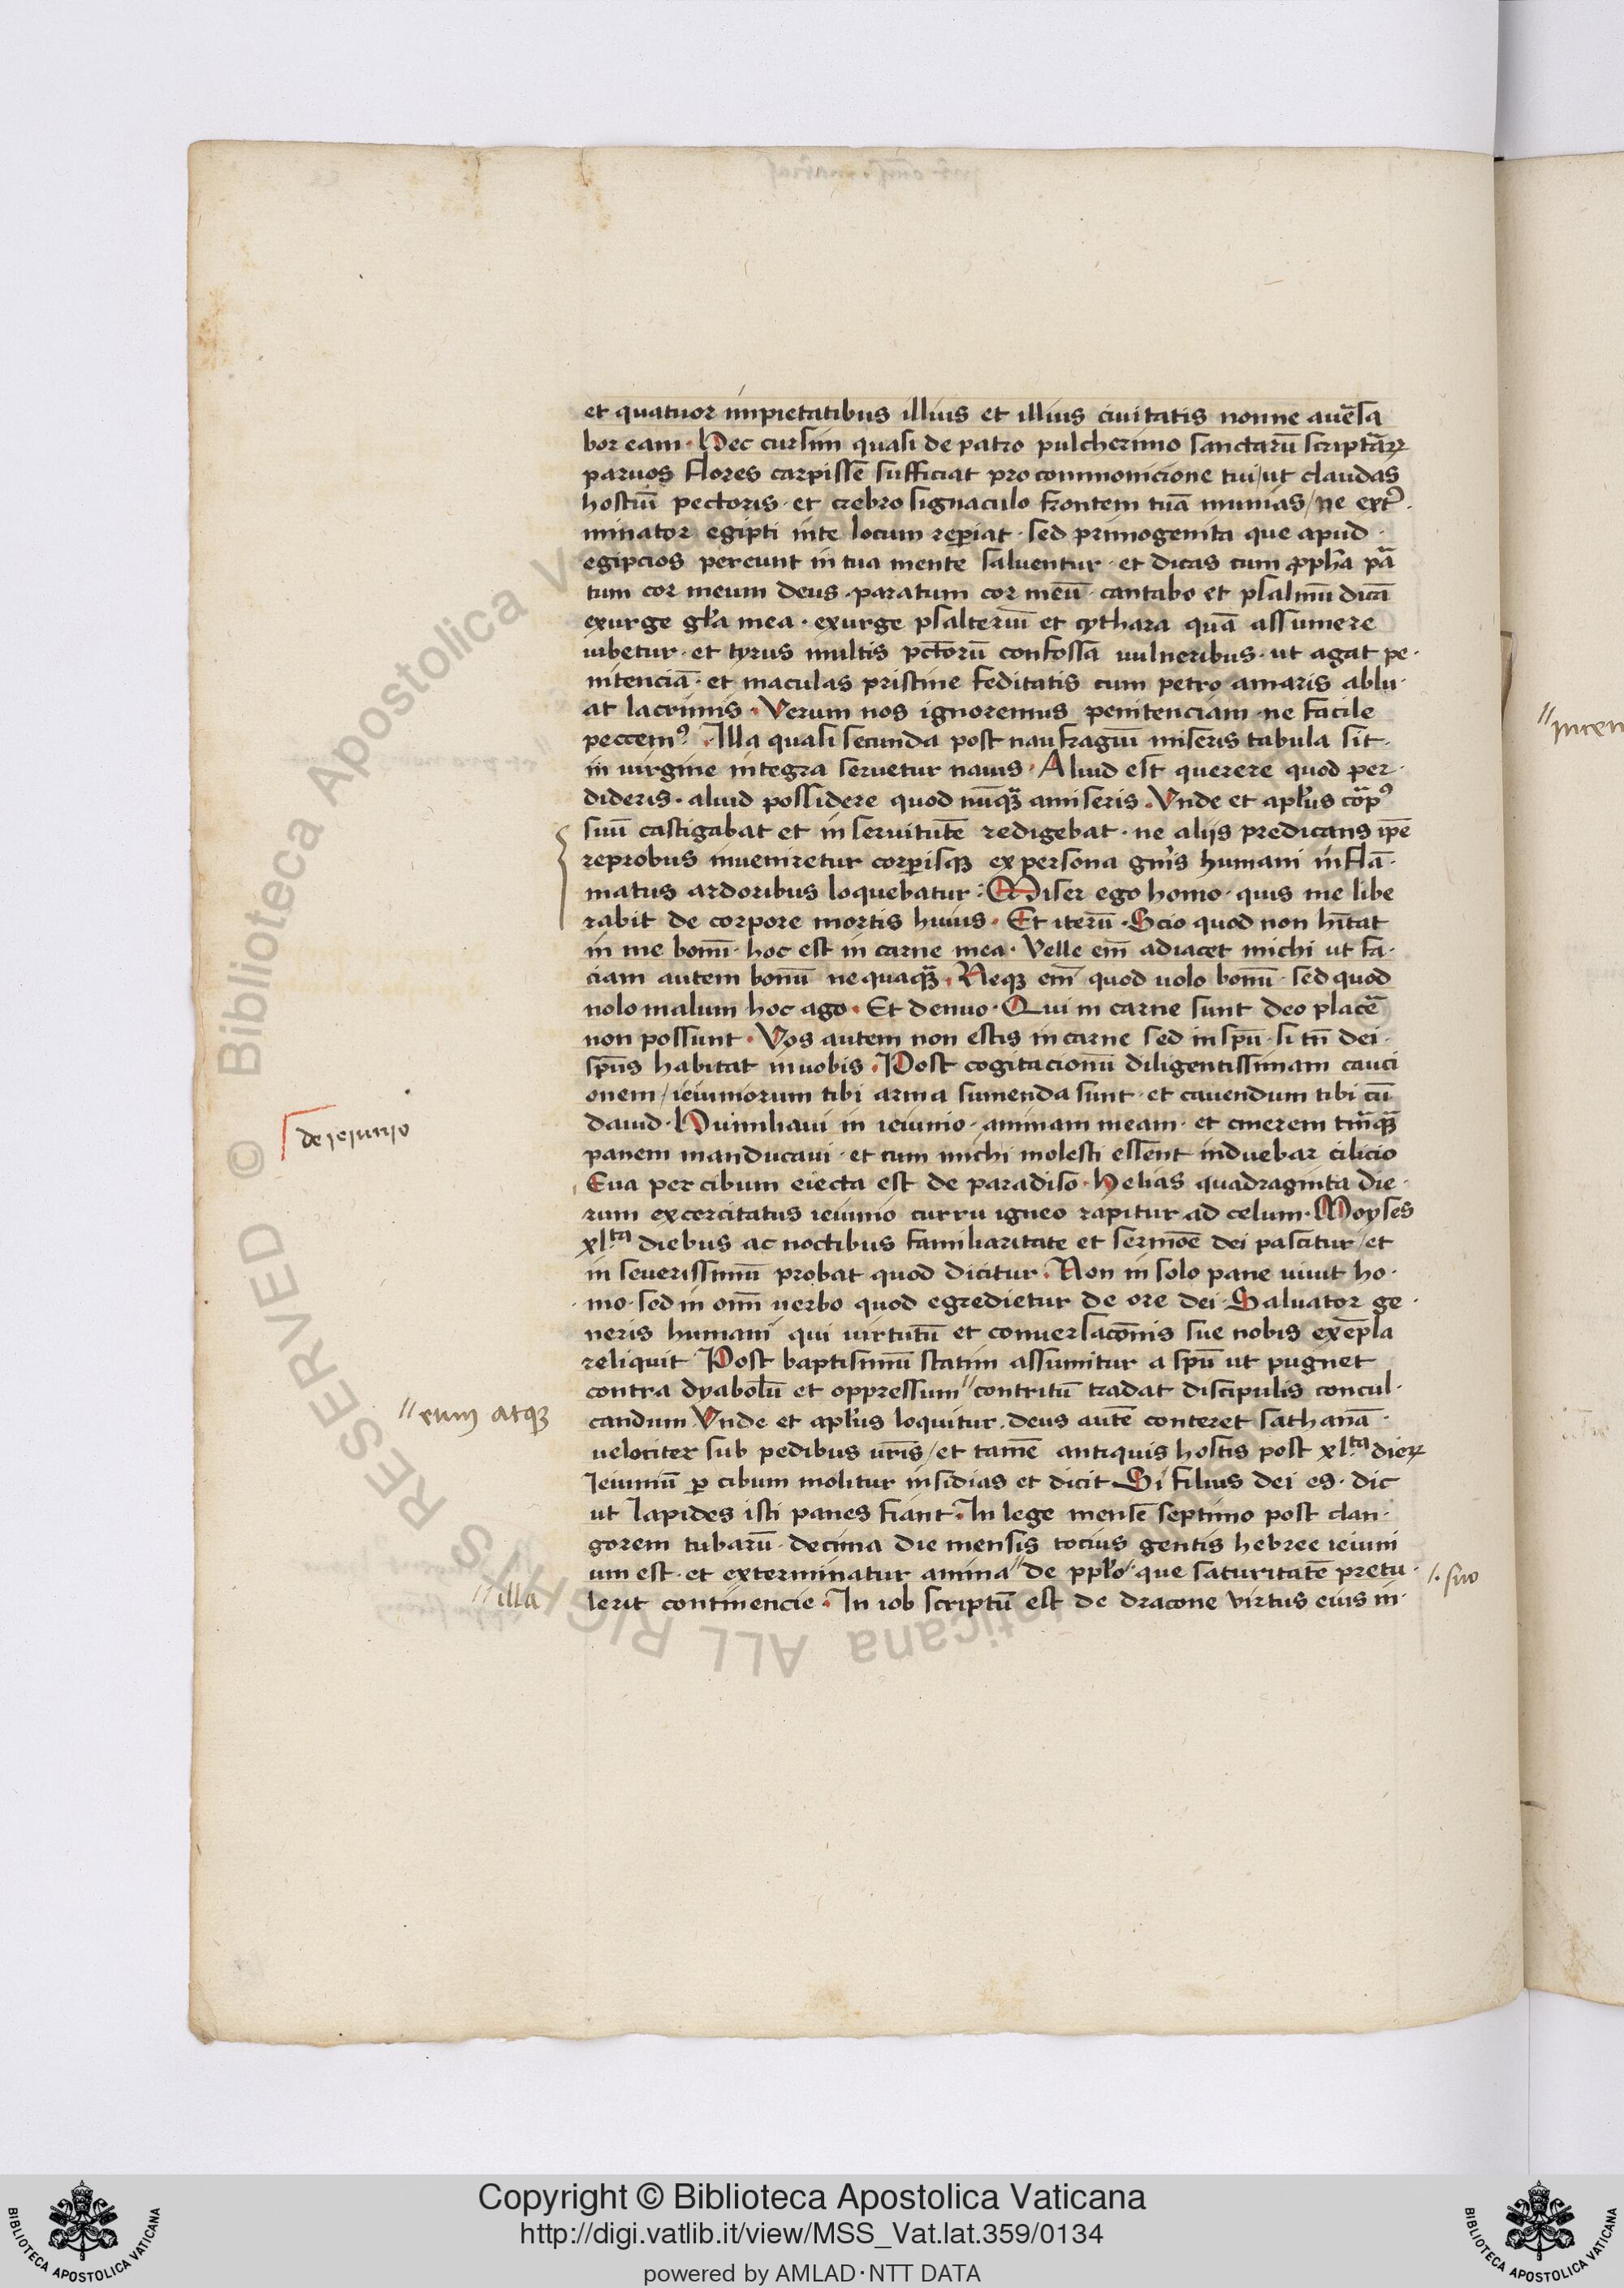 et quatuor impietatibus illius et illius ciuitatis nonne auēsa
bor eam · Hec cursim quasi de patro pulcherimo sanctarū scriptāꝝ
paruos flores carpisse sufficiat pro commonicione tui / ut claudas
hostiū pectoris · et crebro signaculo frontem tuā munias / ne ext̉
minator egipti inte locum rep̄iat · sed primogenita que apud
egipcios pereunt in tua mente saluentur · et dicas cum ꝓph̄a pā
tum cor meum deus · paratum cor meū · cantabo et psalmū dicā
exurge gl̄a mea · exurge psalteriū et cythara quā assumere
iubetur · et tyrus multis pc̄torū confossa uulneribus · ut agat pe·
nitenciā · et maculas pristine feditatis cum petro amaris ablu·
at lacrimis · Verum nos ignoremus penitenciam · ne facile
peccemꝰ · Illa quasi secunda post naufragiū miseris tabula sit ·
in uirgine integra seruetur nauis · Aliud est querere quod per·
dideris · aliud possidere quod nūqᷓ amiseris · Vnde et apl̄us cōpꝰ
suū castigabat et in seruitutē redigebat · ne alijs predicans ip̄e
reprobus inueniretur corp̄isqꝫ ex persona gn̄is humani inflā·
matus ardoribus loquebatur : Miser ego homo · quis me libe
rabit de corpore mortis huius · Et iterū · Scio quod non hītat
in me bonū · hoc est in carne mea · Velle em̄ adiacet michi ut fa·
ciam autem bonū nequaqᷓ · Neqꝫ em̄ quod uolo bonū · sed quod
nolo malum hoc ago · Et denuo · Qui in carne sunt deo placē
non possunt · Vos autem non estis in carne sed in sp̄u · si tn̄ dei ·
sp̄us habitat in uobis · Post cogitacionū diligentissimam cauci
onem / ieiuniorum tibi arma sumenda sunt · et cauendum tibi cū
dauid · Humiliaui in ieiunio · animam meam · et cinerem tāqᷓ
panem manducaui · et cum michi molesti essent induebar cilicio
Eua per cibum eiecta est de paradiso · Helias quadraginta die·
rum excercitatus ieiunio curru igneo rapitur ad celum · Moyses
xl.ta diebus ac noctibus familiaritate et sermoē dei pascitur / et
in seuerissimū probat quod dicitur · Non in solo pane uiuit ho·
mo · sed in om̄i uerbo quod egredietur de ore dei · Saluator ge·
neris humani qui uirtutū et conuersacōnis sue nobis exēpla
reliquit Post baptismū statim assumitur a sp̄u ut pugnet
contra dyabolū et oppressum // contritū tradat discipulis concul·
candum Vnde et apl̄us loquitur · deus autē conteret sathanā ·
uelociter sub pedibus ur̄is / et tamē antiquis hostis post xl.ta dieꝝ
Ieiuniū ꝑ cibum molitur insidias et dicit Si filius dei es · dic
ut lapides isti panes fiant · In lege mensē septimo post clan·
gorem tubarū · decima die mensis tocius gentis hebree ieiuni
um est · et exterminatur anima // de ppl̄o // · que saturitatē pretu·
lerit continencie · In iob scriptū est de dracone virtus eius in·
de jeiunio
// eum atqꝫ
// illa
//. suo
Copyright © Biblioteca Apostolica Vaticana
http://digi.vatlib.it/view/MSS_Vat.lat.359/0134
powered by AMLAD·NTT DATA
BIBLIOTECA APOSTOLICA VATICANA
BIBLIOTECA APOSTOLICA VATICANA